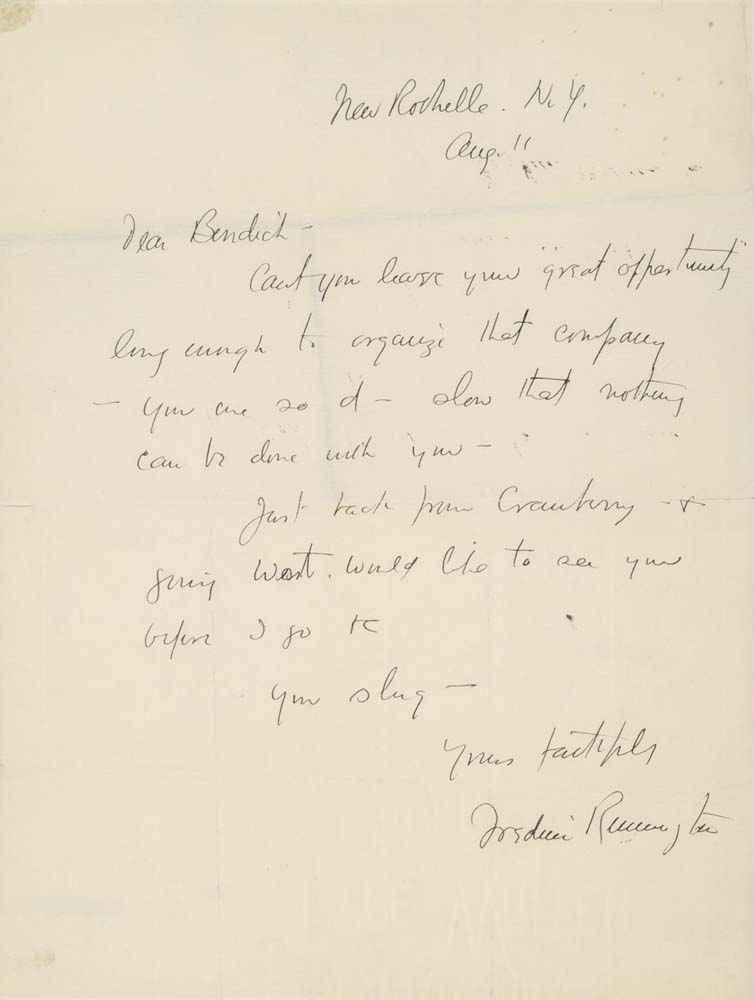 New Rochelle. N. Y.
Aug. 11
Dear Bendick -
Cant you leave your "great opportunity"
long enough to organize that company
- you are so d - slow that nothing
can be done with you -
Just back from Cranberry - &
going West. Would like to see you
before I go
you slug -
Yours faithfully
Frederic Remington